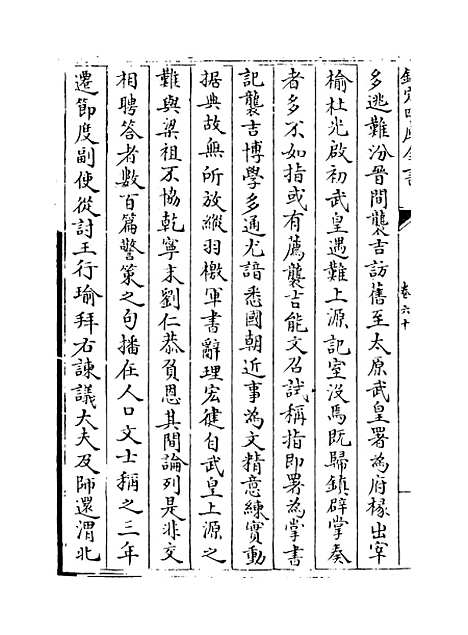 欽定四庫全書
卷六十
多逃難汾晉間襲吉訪舊至太原武皇署為府掾出宰
榆社光啟初武皇遇難上源記室沒焉既歸鎮辟掌奏
者多不如指或有薦襲吉能文召試稱指即署為掌書
記襲吉博學多通尤諳悉國朝近事為文精意練實動
据典故無所放縱羽檄軍書辭理宏健自武皇上源之
難與梁祖不協乾寧末劉仁恭負恩其間論列是非交
相聘答者數百篇警策之句播在人口文士稱之三年
遷節度副使從討王行瑜拜右諫議大夫及師還渭北